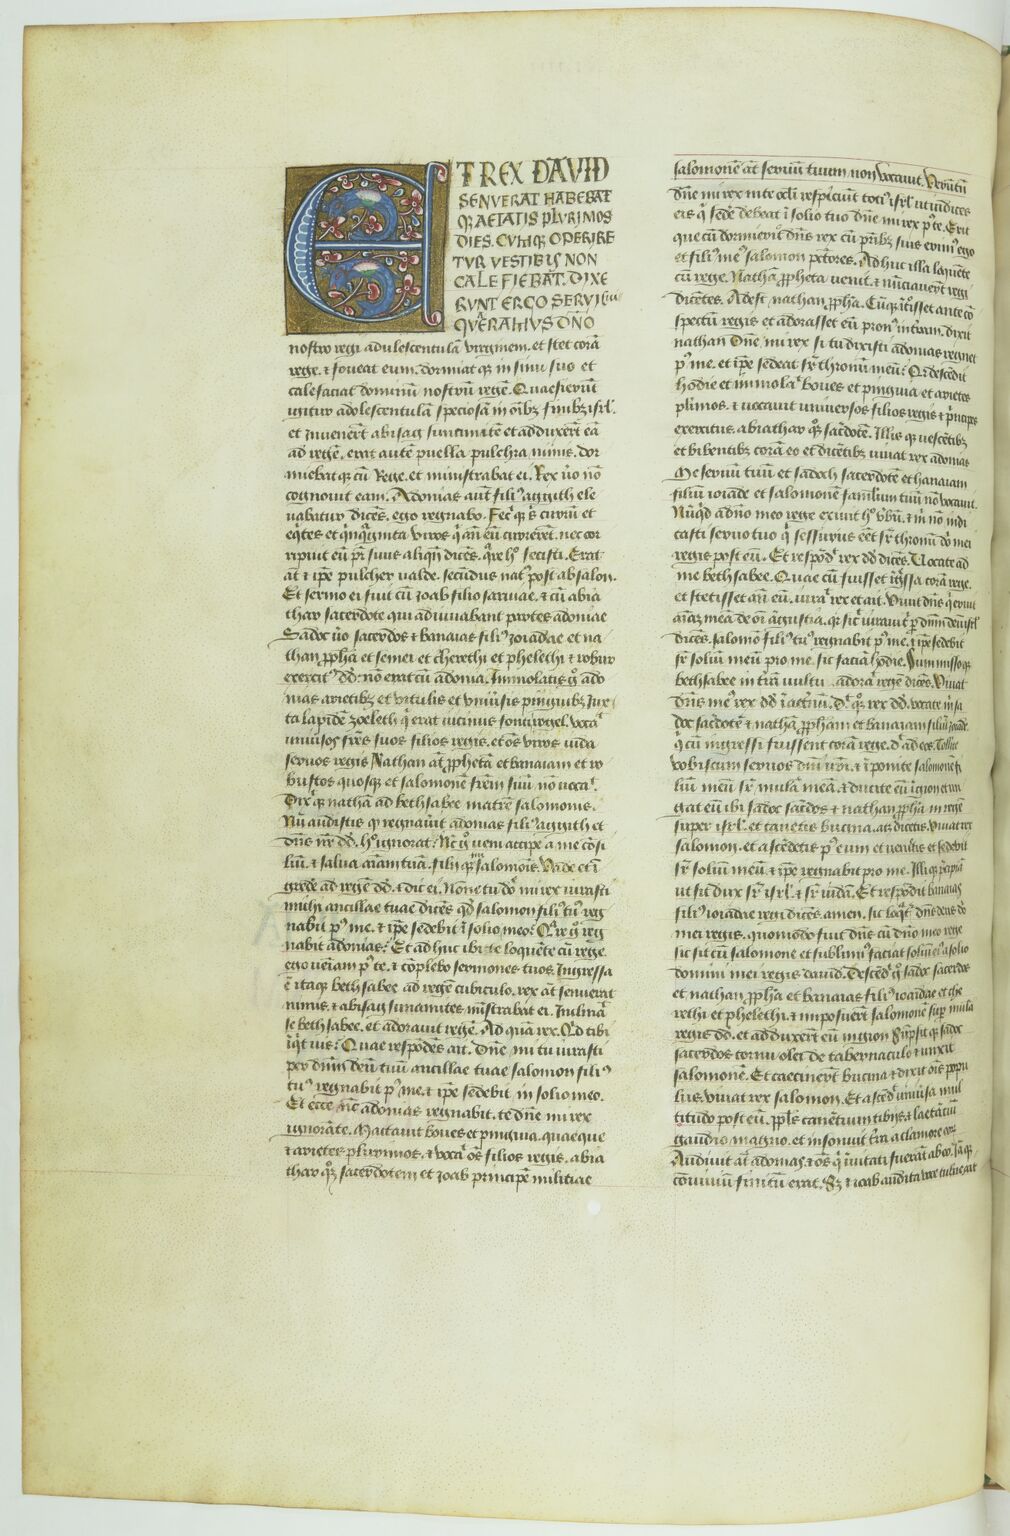 ET REX DAVID
SENVERAT HABEBAT
Q; AETATIS PLVRIMOS
DIES. CVMQ; OPERIRE
TVR VESTIBVS NON
CALEFIEBAT. DIXE
RVNT ERGO SERVI sui
QVERAMVS DNO
nostro regi adulescentulā virginem. et stet corā
rege. & foveat eum. dormiatque in sinu suo et
calefaciat dominum nostrū regē. Quaesierūt
igitur adolescentulā speciosā in oībꝫ finibꝫ isrl'.
et invenert abisag sunamitē et adduxert eā
ad regē. erat autē puella pulchra nimis. dor
miebatque cū Rege. et ministrabat ei. Rex ūo nō
cognovit eam. Adonias aūt fili' aggith ele
vabatur dicēs. ego regnabo. Fecitque sibi currū et
eq'tes et q'nq'ginta viros q' añ eū currerēt. nec cor
ripuit eū pr suus aliqñ dicēs. q're h' fecisti. Erat
aūt & ipe pulcher valde. secūdus nat' post absalon.
Et sermo ei fuit cū Joab filio sarviae. & cū abia
thar sacerdote qui adiuvabant partes adoniae
Sadoc ūo sacerdos & banaias fili' Joiadae et na
than ꝓpha et semei et cherethi et phelethi & robur
exercit' dd. nō erat cū adonia. Immolatis g° ado
nias arietibꝫ et vitulis et univsis pinguibꝫ Jux
ta lapidē zoeleth q' erat vicinus fonti rogel. vocavit
univsos frēs suos filios regis. et oēs viros iuda
servos regis Nathan aūt ꝓphetā et banaiam et ro
bustos quosque et salomonē frēm suū nō vocavit.
Dixitque nathā ad bethsabee matrē salomonis.
Nū audistis q regnavit adonias fili' aggith et
dñs nr dd. h' ignorat. Nc g° veni accipe a me cōsi
liū. & salva aīam tuā. filiique tui salomōis. Vade et ī
gredere ad regē dd. & dic ei. Nonne tu dñe mi rex iurasti
mihi ancillae tuae dicēs qd salomon fili' tu' reg
nabit p' me. & ipe sedebit ī solio meo. Q're g° reg
nabit adonias. Et ad huc ibi te loquēte cū rege.
ego veniam p' te. & cōplebo sermones tuos. Ingressa
ē itaque bethsabee ad regē cubiculo. rex aūt senuerat
nimis. & abisag sunamites mīstrabat ei. Inclinavit
se bethsabee. et adoravit regē. Ad quā rex. Qd tibi
inquit vis. Quae respōdēs ait. Dñe mi tu iurasti
per dñm deū tuū ancillae tuae salomon fili'
tu' regnabit p' me. & ipe sedebit in solio meo.
Et ecce nc adonias regnabit. te dñe mi rex
ignorāte. Mactavit boves et pinguia quaeque
& arietes plurimos. & vocavit oēs filios regis. abia
thar quoque sacerdotem et Joab principē militiae
salomonē aūt servū tuum non vocavit. Verūtn
dñe mi rex in te ocli respiciunt toti' isrl' ut indices
eis q's sedere debeat ī solio tuo dñe mi rex p' te. Erit
que cū dormierit dñs rex cū pribꝫ suis erim' ego
et fili' me' salomon peccatores. Ad huc illa loquēte
cū rege. Nathā ꝓpheta venit. & nūciavert regi
dicētes. Adest nathan ꝓpha. Cūque ītroisset ante cō
spectū regis et adorasset eū pron' in trām. dixit
nathan Dñe mi rex si tu dixisti adonias regnet
p' me. et ipe sedeat sr thronū meū. Q descēdit
hodie et immolavit boves et pinguia et arietes
plimos. & vocavit universos filios regis & principes
exercitus. abiathar quoque sacdotē. Illis que vescētibꝫ
et bibentibꝫ corā eo et dicētibꝫ vivat rex adonias
Me servū tuū et sadoch sacerdotē et banaiam
filiū ioiade et salomonē famlum tuū nō vocavit.
Nūquid a dño meo rege exivit h' vbū. & m nō indi
casti servo tuo q's sessurus eēt sr thronū dñi mei
regis post eū. Et respōdit rex dd dicēs. Vocate ad
me bethsabee. Quae cū fuisset īgressa corā rege.
et stetisset añ eū. iuravit rex et ait. Vivit dñs q' eruit
aīam meā de oī āgustia. q sic' iuravi t' p dñm deū isrl'
dicēs. salomō fili' tu' regnabit p' me. & ipe sedebit
sr soliū meū pro me. sic faciā hodie. Summissoque
bethsabee in trā vultu adoravit regē dicēs. Vivat
dñs me' rex dd ī aeternū. Dixit quoque rex dd. vocate m sa
doc sacdotē & nathā ꝓpham et banaiam filiū Joiade.
q' cū ingressi fuissent corā rege. dixit ad eos. Tollite
vobiscum servos dñi vri. & īponite salomonē fi
liū meū sr mulā meā. & ducite eū ī gion et un
gat eū ibi sadoc sacdos & nathan ꝓpha in regē
super isrl'. et canetis bucina. atque dicetis. Vivat rex
salomon. et ascēdetis p' eum et veniet et sedebit
sr soliū meū. & ipe regnabit pro me. Illique p'cipiā
ut sit dux sr isrl'. & sr iudā. Et respōdit banaias
fili' ioiadae regi dicēs. amen. sic loq'tur dñs deus dñi
mei regis. quomodo fuit dñs cū dño meo rege
sic sit cū salomone et sublimi' faciat soliū ei' a solio
domini mei regis david. Descēdit g° sadoc sacerdos
et nathan ꝓpha et banaias fili' ioiadae et che
rethi et phelethi. & imposuert salomonē sup mulā
regis dd. et adduxert eū in gion Sūpsitque sadoc
sacerdos cornu olei de tabernaculo & unxit
salomonē. Et caecinert bucina & dixit oīs popu
lus. vivat rex salomon. Et ascēdit univsa mul
titudo post eū. ppls canētium tibiis & laetātiū
gaudio magno. et insonuit tra a clamore eorū
Audivit aūt adonias & oēs q' īvitati fuerāt ab eo. Jāque
cōviviū finitū erat. Sꝫ & ioab audita voce tubae ait